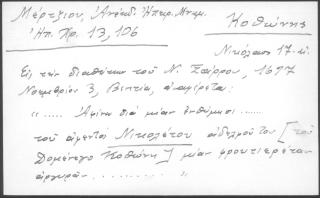 Μέρτζιον, Ἀνέκδ. Ἠπειρ. Μνημ.
Ἠπ. Χρ. 13, 106
Κοθώνης
Νικόλαος 17-
Εἰς τὴν διαθήκην τοῦ Ν. Σαίρρου, 1677
Νοεμβρίου 3, Βενετία, ἀναφέρεται:
« ..... Ἀφίνω διὰ μίαν ἐνθύμησι ......
τοῦ ἀφεντὸς Νικολέτου ἀδελφοῦ του [τοῦ
Δομένεγο Κοθώνη] μίαν φρουτιερέταν
ἀργυρᾶν .......... »